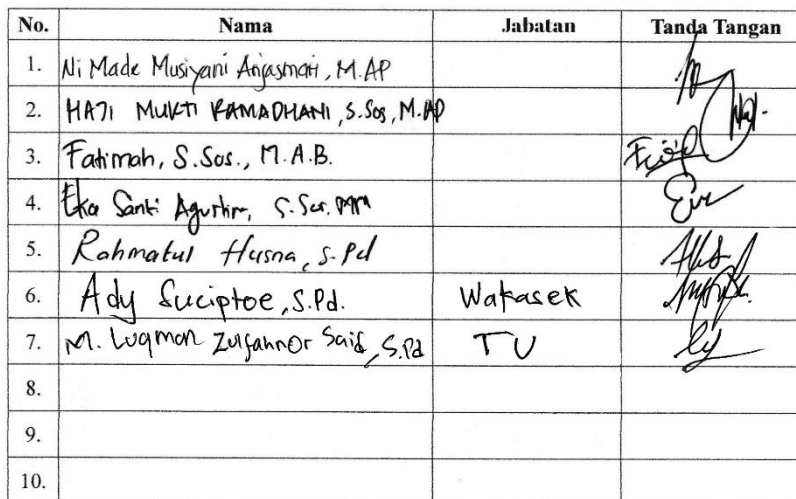 No. Nama Jabatan Tanda Tangan
1. Ni Made Musiyani Anjasmari, M.AP
2. HAJI MUKTI RAMADHANI, S.Sos, M.AP
3. Fatimah, S.Sos., M.A.B.
4. Eka Santi Agustina, S.Sos. MM
5. Rahmatul Husna, S.Pd
6. Ady Suciptoe, S.Pd. Wakasek
7. M. Luqman Zulfahnor Said, S.Pd TU
8.
9.
10.